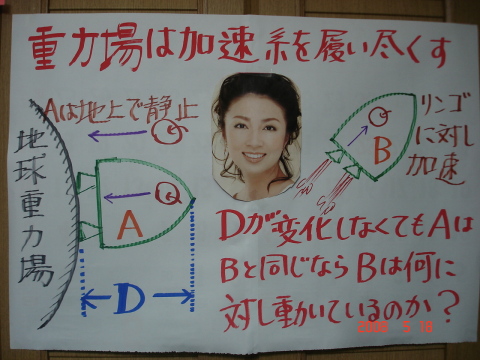 重力場は加速系を履い尽くす
Aは地上で静止
リンゴ
に対し
加速
B
A
地球重力場
D
Dが変化しなくてもAは
Bと同じならBは何に
対し動いているのか?
2009 5 18